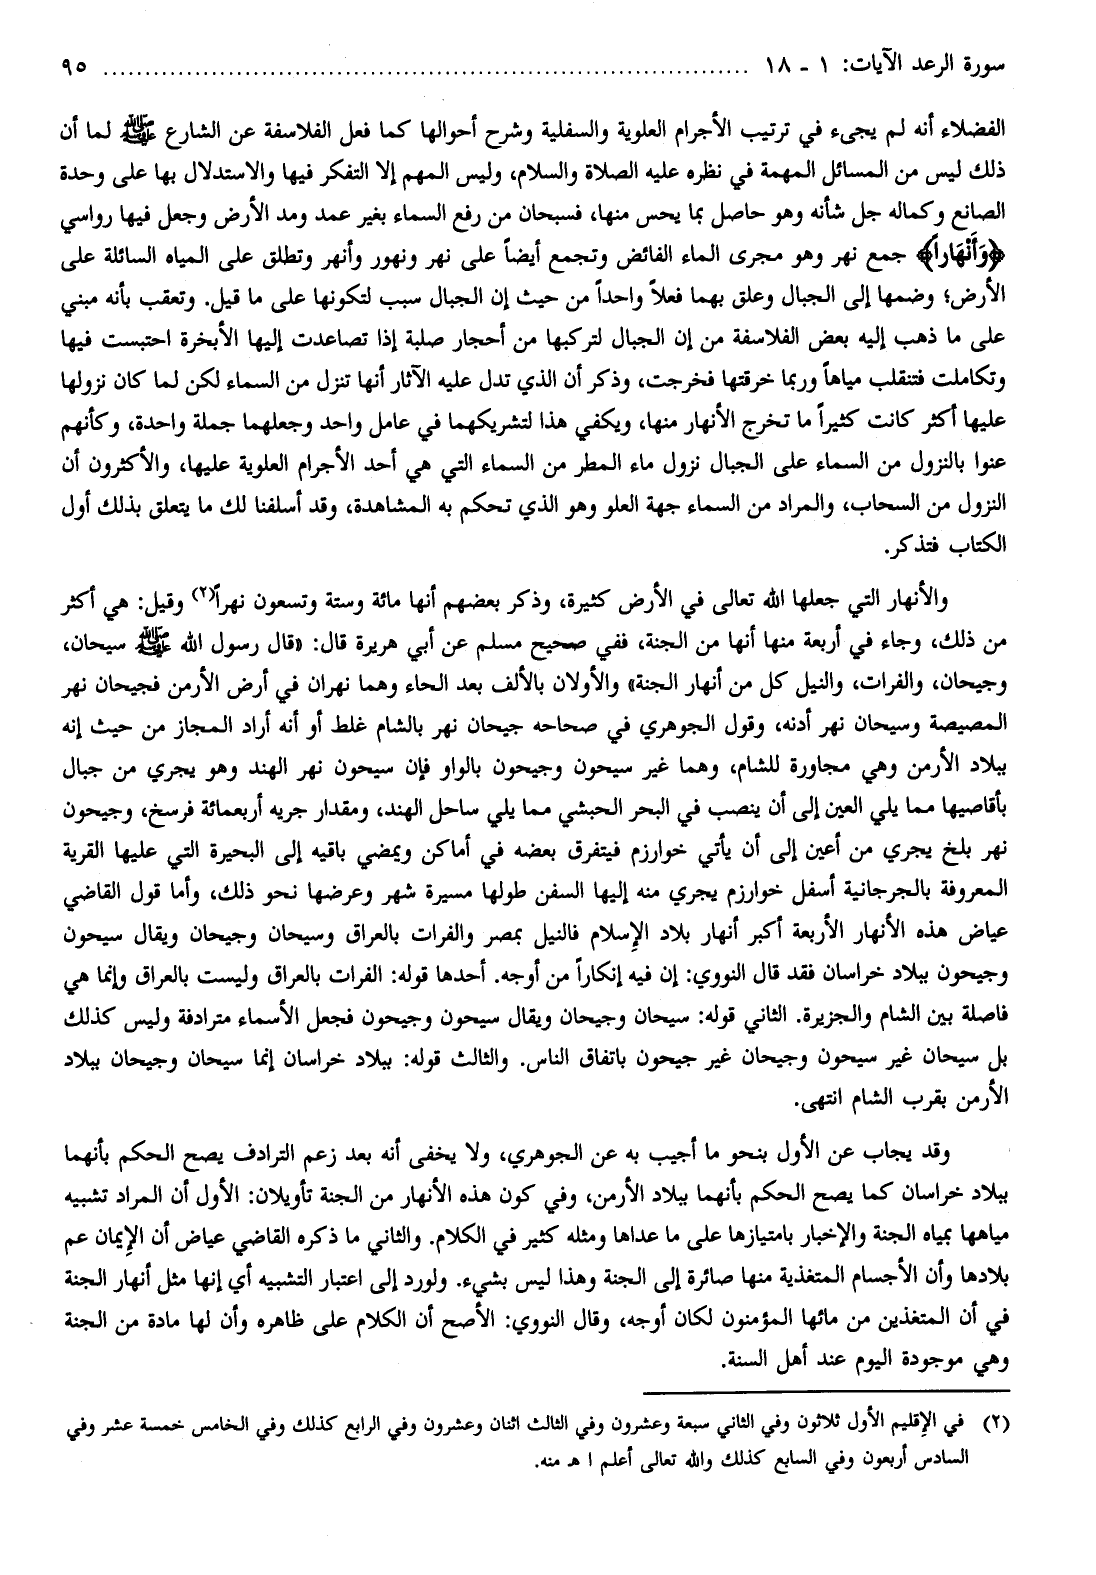 سورة الرعد الآيات: ١ ـ ١٨ ........................................................................ ٩٥
الفضلاء أنه لم يجىء في ترتيب الأجرام العلوية والسفلية وشرح أحوالها كما فعل الفلاسفة عن الشارع ﷺ لما أن
ذلك ليس من المسائل المهمة في نظره عليه الصلاة والسلام، وليس المهم إلا التفكر فيها والاستدلال بها على وحدة
الصانع وكماله جل شأنه وهو حاصل بما يحس منها، فسبحان من رفع السماء بغير عمد ومد الأرض وجعل فيها رواسي
﴿وَأَنْهَاراً﴾ جمع نهر وهو مجرى الماء الفائض وتجمع أيضاً على نهر ونهور وأنهر وتطلق على المياه السائلة على
الأرض؛ وضمها إلى الجبال وعلق بهما فعلاً واحداً من حيث إن الجبال سبب لتكونها على ما قيل. وتعقب بأنه مبني
على ما ذهب إليه بعض الفلاسفة من إن الجبال لتركبها من أحجار صلبة إذا تصاعدت إليها الأبخرة احتبست فيها
وتكاملت فتنقلب مياهاً وربما خرقتها فخرجت، وذكر أن الذي تدل عليه الآثار أنها تنزل من السماء لكن لما كان نزولها
عليها أكثر كانت كثيراً ما تخرج الأنهار منها، ويكفي هذا لتشريكهما في عامل واحد وجعلهما جملة واحدة، وكأنهم
عنوا بالنزول من السماء على الجبال نزول ماء المطر من السماء التي هي أحد الأجرام العلوية عليها، والأكثرون أن
النزول من السحاب، والمراد من السماء جهة العلو وهو الذي تحكم به المشاهدة، وقد أسلفنا لك ما يتعلق بذلك أول
الكتاب فتذكر.
والأنهار التي جعلها الله تعالى في الأرض كثيرة، وذكر بعضهم أنها مائة وستة وتسعون نهراً(٢) وقيل: هي أكثر
من ذلك، وجاء في أربعة منها أنها من الجنة، ففي صحيح مسلم عن أبي هريرة قال: «قال رسول الله ﷺ سيحان،
وجيحان، والفرات، والنيل كل من أنهار الجنة» والأولان بالألف بعد الحاء وهما نهران في أرض الأرمن فجيحان نهر
المصيصة وسيحان نهر أدنه، وقول الجوهري في صحاحه جيحان نهر بالشام غلط أو أنه أراد المجاز من حيث إنه
ببلاد الأرمن وهي مجاورة للشام، وهما غير سيحون وجيحون بالواو فإن سيحون نهر الهند وهو يجري من جبال
بأقاصيها مما يلي العين إلى أن ينصب في البحر الحبشي مما يلي ساحل الهند، ومقدار جريه أربعمائة فرسخ، وجيحون
نهر بلخ يجري من أعين إلى أن يأتي خوارزم فيتفرق بعضه في أماكن ويمضي باقيه إلى البحيرة التي عليها القرية
المعروفة بالجرجانية أسفل خوارزم يجري منه إليها السفن طولها مسيرة شهر وعرضها نحو ذلك، وأما قول القاضي
عياض هذه الأنهار الأربعة أكبر أنهار بلاد الإسلام فالنيل بمصر والفرات بالعراق وسيحان وجيحان ويقال سيحون
وجيحون ببلاد خراسان فقد قال النووي: إن فيه إنكاراً من أوجه. أحدها قوله: الفرات بالعراق وليست بالعراق وإنما هي
فاصلة بين الشام والجزيرة. الثاني قوله: سيحان وجيحان ويقال سيحون وجيحون فجعل الأسماء مترادفة وليس كذلك
بل سيحان غير سيحون وجيحان غير جيحون باتفاق الناس. والثالث قوله: ببلاد خراسان إنما سيحان وجيحان ببلاد
الأرمن بقرب الشام انتهى.
وقد يجاب عن الأول بنحو ما أجيب به عن الجوهري، ولا يخفى أنه بعد زعم الترادف يصح الحكم بأنهما
ببلاد خراسان كما يصح الحكم بأنهما ببلاد الأرمن، وفي كون هذه الأنهار من الجنة تأويلان: الأول أن المراد تشبيه
مياهها بمياه الجنة والإخبار بامتيازها على ما عداها ومثله كثير في الكلام. والثاني ما ذكره القاضي عياض أن الإيمان عم
بلادها وأن الأجسام المتغذية منها صائرة إلى الجنة وهذا ليس بشيء. ولورد إلى اعتبار التشبيه أي إنها مثل أنهار الجنة
في أن المتغذين من مائها المؤمنون لكان أوجه، وقال النووي: الأصح أن الكلام على ظاهره وأن لها مادة من الجنة
وهي موجودة اليوم عند أهل السنة.
(٢) في الإقليم الأول ثلاثون وفي الثاني سبعة وعشرون وفي الثالث اثنان وعشرون وفي الرابع كذلك وفي الخامس خمسة عشر وفي
السادس أربعون وفي السابع كذلك والله تعالى أعلم ا هـ منه.